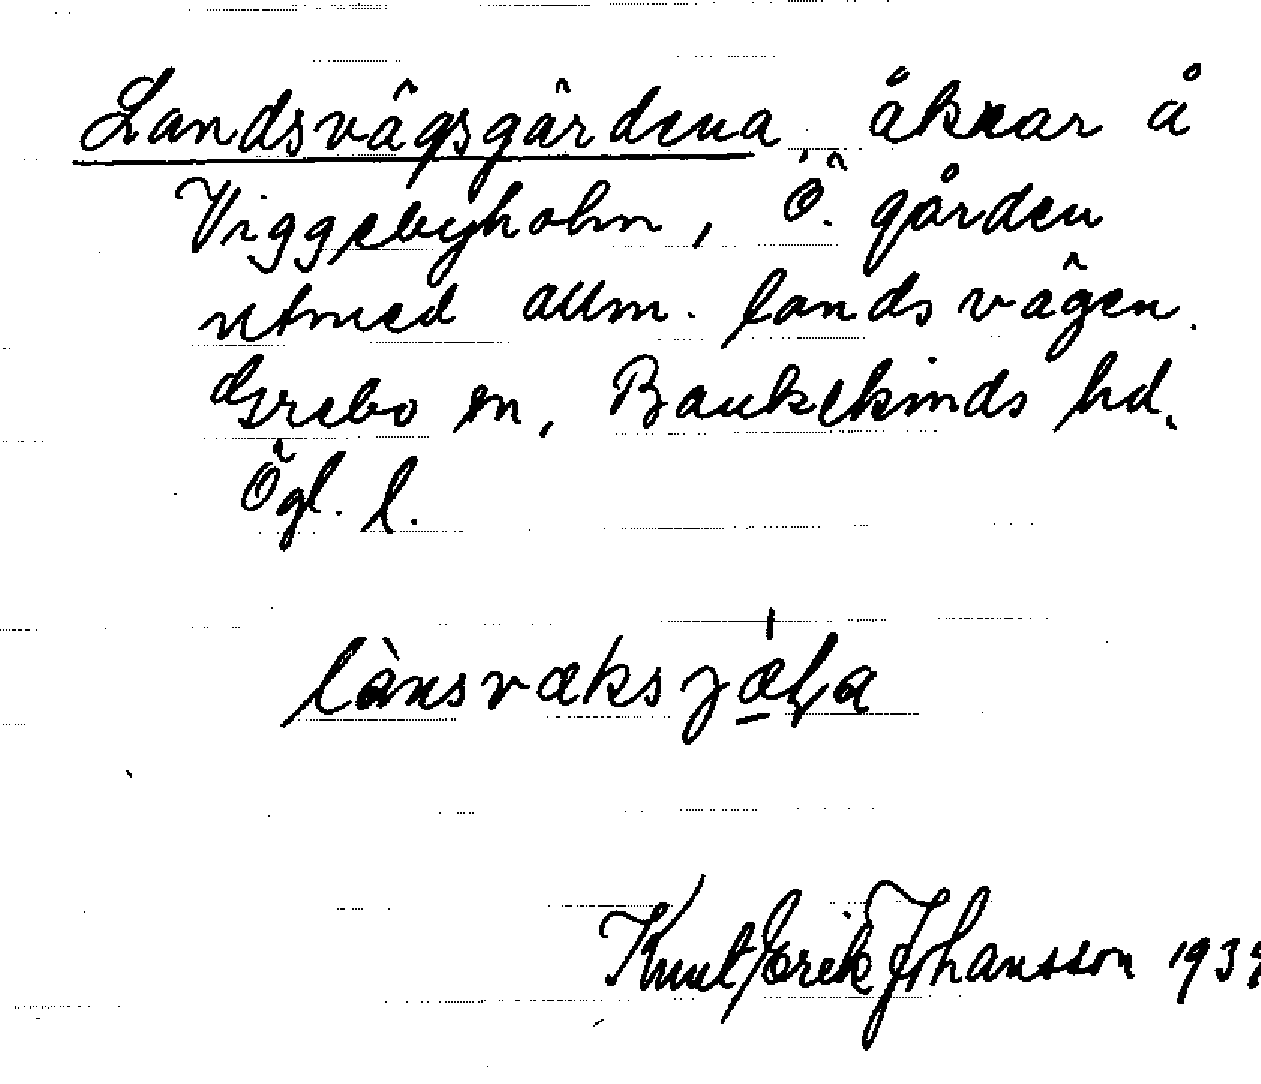 Landsvägsgärdena åkrar å
Viggebyholm, Ö. gården
utmed allm. landsvägen.
Grebo sn, Bankekinds hd.
Ögl. l.
Knut Erik Johansson